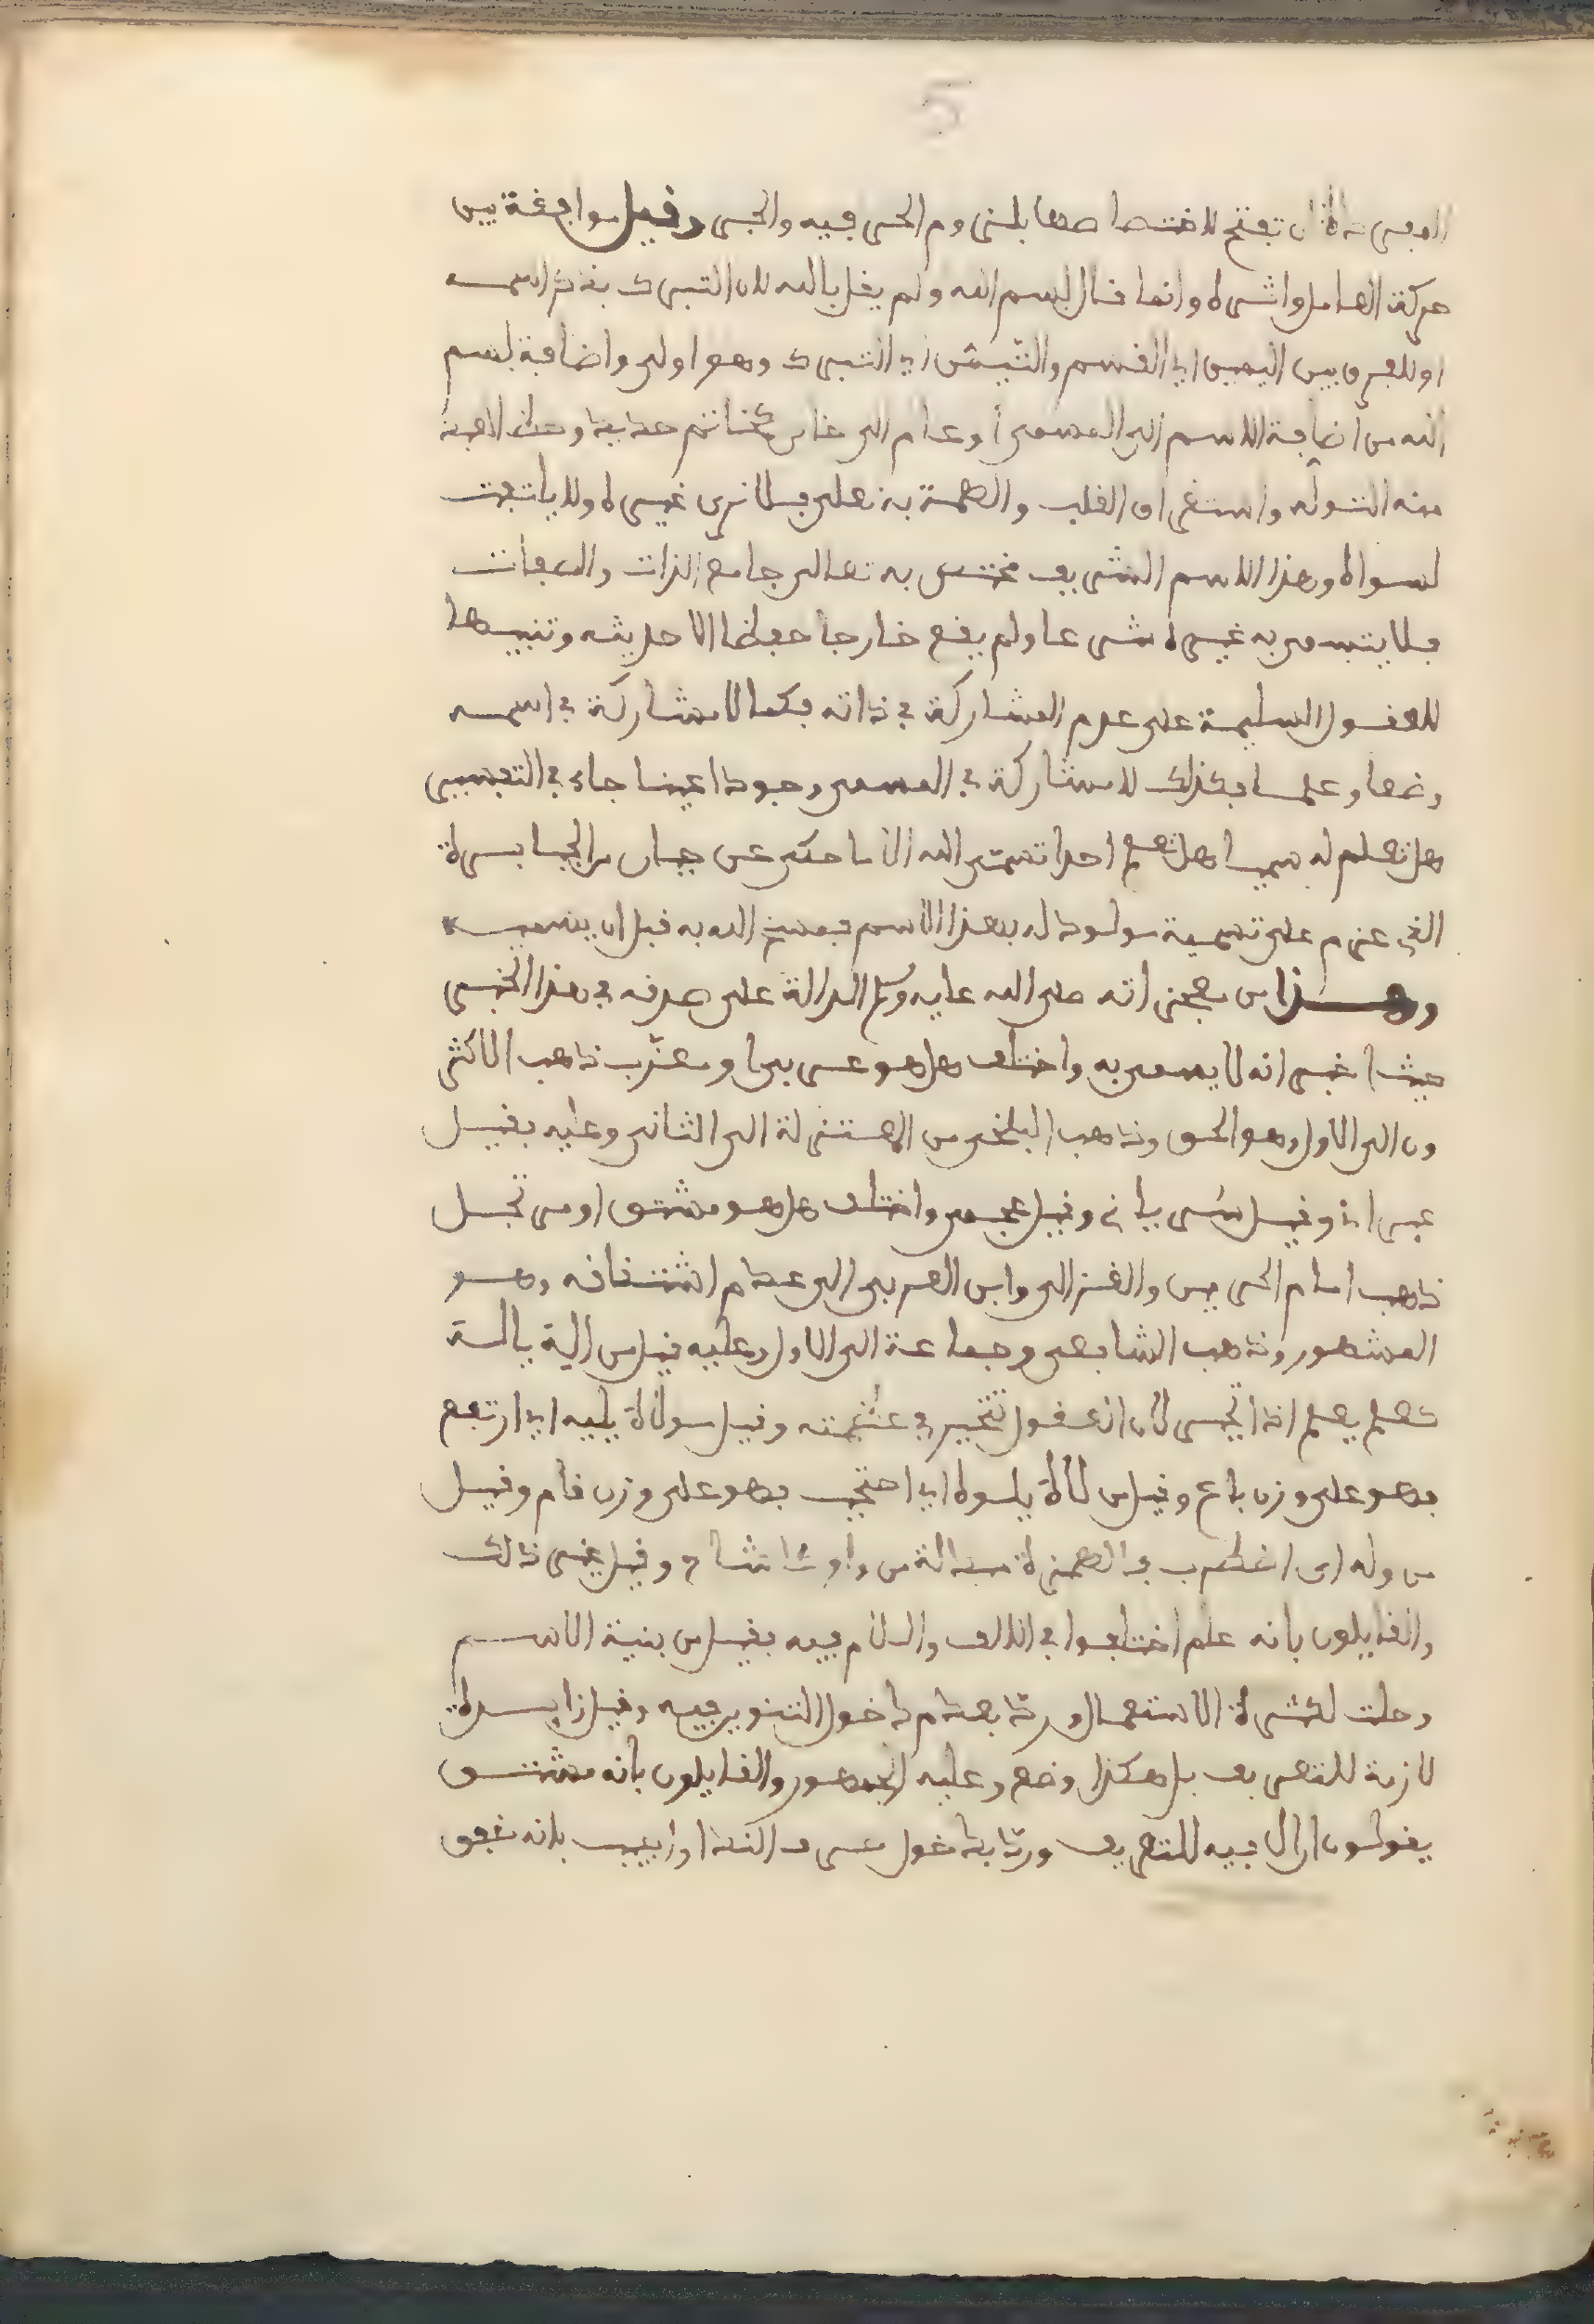 5
المفردة ان تفتح لاختصاصها بلزوم الحرفية والجر وقيل موافقة بين
حركة العامل واثره وانما قال بسم الله ولم يقل بالله لان التبرك بذكر اسمه
او للفرق بين اليمين اي القسم والتيمن اي التبرك وهو اولى واضافة بسم
الله من اضافة الاسم الى المسمى او عام الى خاص كخاتم حديد وحظ
منه التوله واستغراق القلب والهمة به تعلى فلا نرى غيره ولا يلتفت
لسواه وهذا الاسم الشريف مختص به تعالى جامع الذات والصفات
فلا يتسمى به غيره شرعا ولم يقع خارجا حفظا لاحديته وتنبيها
للعقول السليمة على عدم المشاركة في ذاته فكما لا مشاركة في اسمه
وضعا وعلما فكذلك لا مشاركة في المسمى وجودا عينا جاء في التفسير
هل تعلم له سميا هل تعلم احدا تسمى الله الا ما حكي عن جبار من الجبابرة
الذي عزم على تسمية مولود له بهذا الاسم فمسخ الله به قبل ان يسميه
وهذا من معجزاته صلى الله عليه وسلم الدالة على صدقه في هذا الخبر
حيث اخبر انه لا يسمى به واختلف هل هو عربي او معرّب ذهب الاكثر
ون الى الاول وهو الحق وذهب البلخي من المعتزلة الى الثاني وعليه فقيل
عبراني وقيل سرياني وقيل عجمي واختلف هل هو مشتق او مرتجل
ذهب امام الحرمين والغزالي وابن العربي الى عدم اشتقاقه وهو
المشهور وذهب الشافعي وجماعة الى الاول وعليه فقيل من اله يأله
كعلم يعلم اذا تحير لان العقول تتحير في عظمته وقيل من لاه يليه اي ارتفع
فهو على وزن باع وقيل من لاه يلوه اي احتجب فهو على وزن قام وقيل
من وله اي اضطرب فالهمزة مبدلة من واو كاشاح وقيل غير ذلك
والقايلون بانه علم اختلفوا في الالف واللام فيه فقيل من بنية الاسم
وصلت لكثرة الاستعمال ورد بعدم دخول التنوين فيه وقيل زايدة
لازمة للتعريف بل هكذا وضع وعليه الجمهور والقايلون بانه مشتق
يقولون ال فيه للتعريف ورد بدخول حرف الندا واجيب بانه